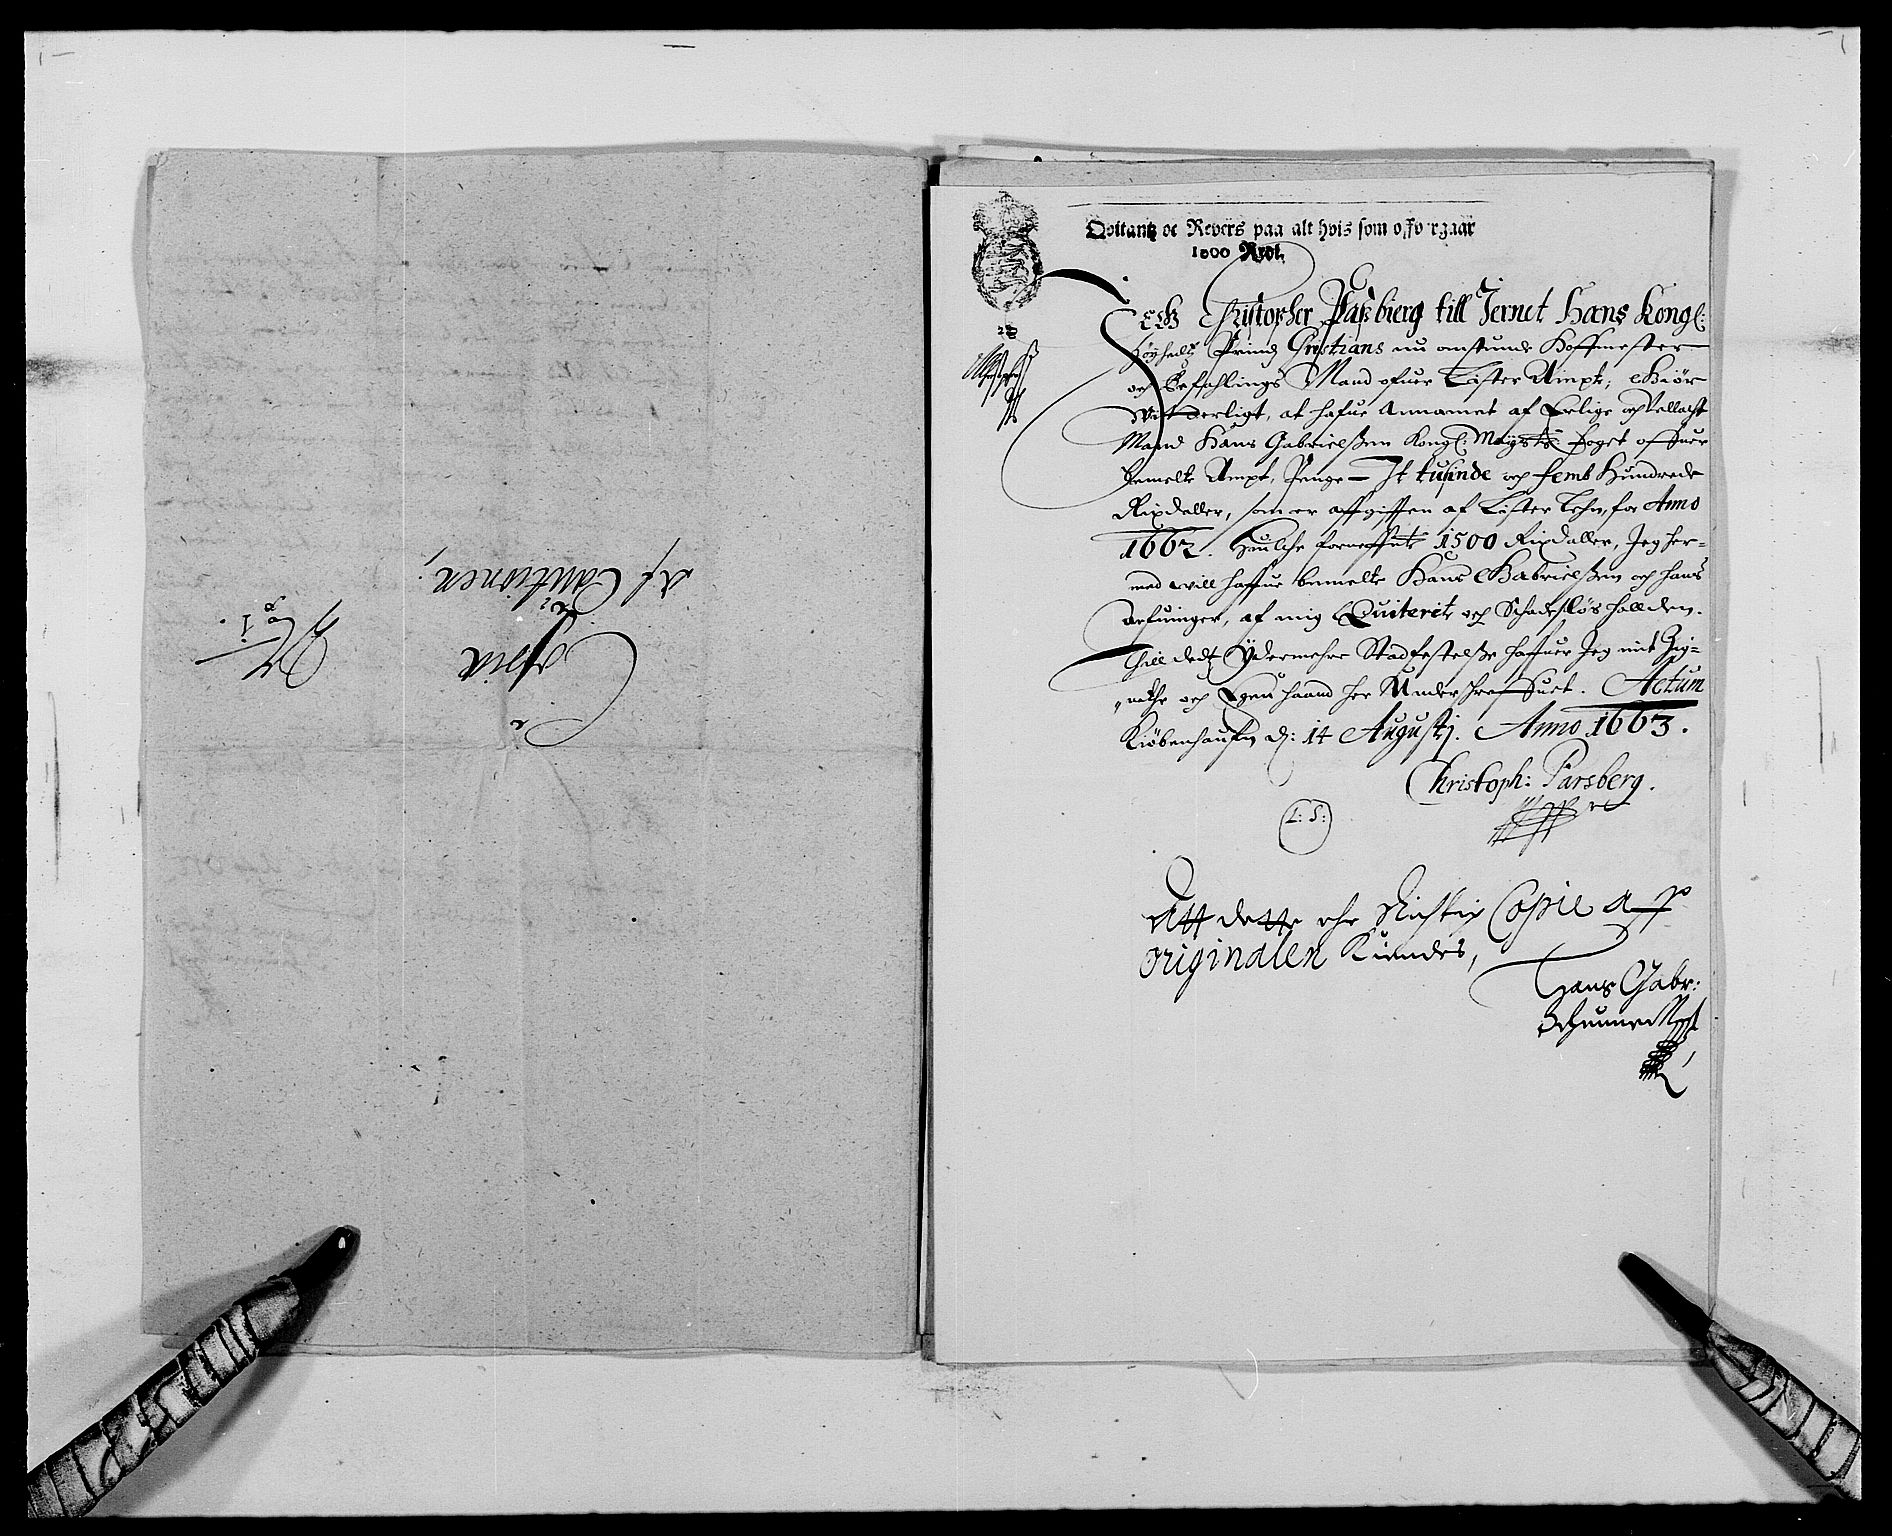 Copia
Af Cautionen,
No 1.
Qvitantz oc Revers paa alt hvis som offvergaar
1000 Rixdlr.
Jeg Christopher Paßbierg till Jernet Hans Kongl:
Høyheds Prindz Christians nu anstunde Hoffmester
och Befahlings Mand ofuer Lister Ampt, Giør
Witterligt, at hafue Annamet af Erlige och Vellacht
Mand Hans Gabrielßen Kongl: Mayts: Foget offuer
bemelte Ampt, Penge – It tusinde och femb Hundrede
Rixdaller, som er affgifften af Lister Lehn, for Anno
1662. Huilche forneffnte 1500 Rixdaller, Jeg her-
med will haffue bemelte Hans Gabrielßen och hans
Arfuinger, af mig Quiterit och Schadesløs hollden.
Thill dedtz Ydermehre Stadfestelße haffuer Jeg mit Zig-
nethe och Egen haand her Underschreffuet. Actum
Kiøbenhaufn dj: 14 Augustj. Anno 1663.
Christoph: Parsberg.
L: S:
Att dette ehr Richtig Copie aff
originalen Kiendes,
Hans Gabr: